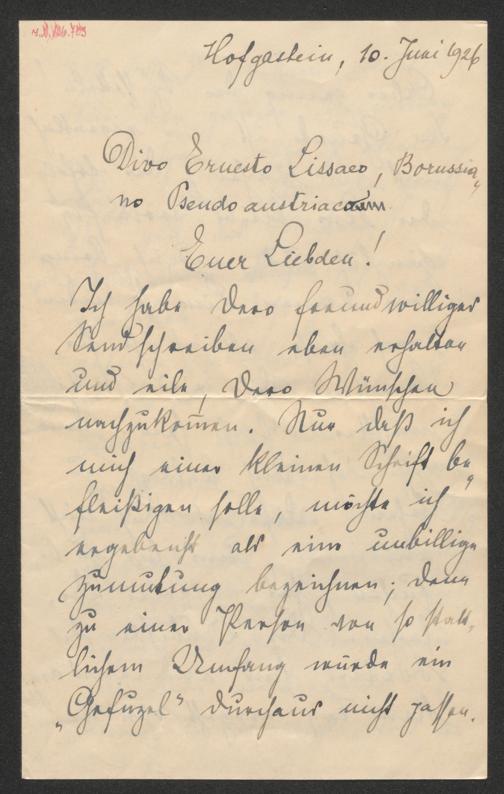 Hofgastein, 10. Juni 1926
Divo Ernesto Lissaeo, Borussia-
no Pseudoaustriaco
Euer Liebden!
Ich habe Dero freundwilliges
Sendschreiben eben erhalten
und eile, Dero Wünschen
nachzukommen. Nur daß ich
mich einer kleinen Schrift be-
fleißigen solle, möchte ich
ergebenst als eine unbillige
Zumutung bezeichnen; denn
zu einer Person von so statt-
lichem Umfang würde ein
„Gefuzel" durchaus nicht passen.